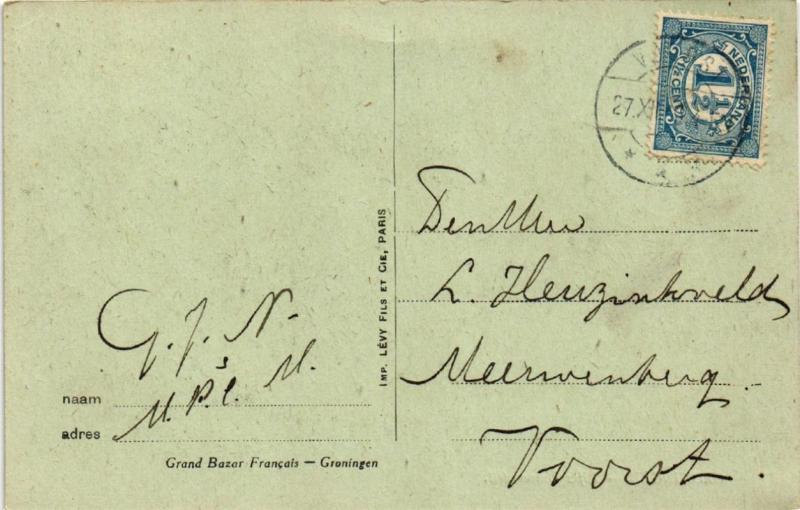 G. J. N.
M.
naam
adres
Grand Bazar Français — Groningen
IMP. LÉVY FILS ET CIE, PARIS
NEDERLAND
1½
CENT
27.X
Den Heer
L. Heuzinkveld
Meerwenberg.
Voorst.